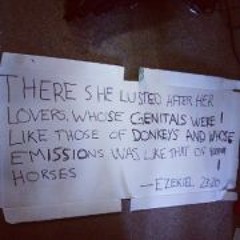 THERE SHE LUSTED AFTER HER
LOVERS, WHOSE GENITALS WERE !
LIKE THOSE OF DONKEYS AND WHOSE
EMISSIONS WAS LIKE THAT OF !
HORSES
—EZEKIEL 23:20